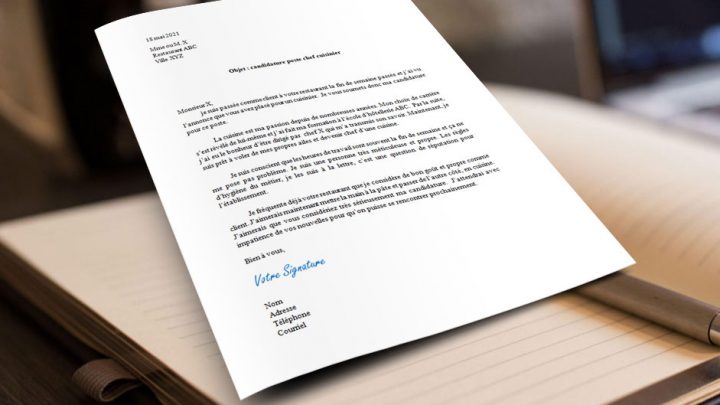 18 mai 2021
Mme ou M. X
Restaurant ABC
Ville XYZ
Objet : candidature poste chef cuisinier
Monsieur X,
je suis passée comme client à votre restaurant la fin de semaine passée et j'ai vu
l'annonce que vous avez placé pour un cuisinier. Je vous soumets donc ma candidature
pour ce poste.
La cuisine est ma passion depuis de nombreuses années. Mon choix de carrière
s'est révélé de lui-même et j'ai fait ma formation à l'école d'hôtellerie ABC. Par la suite,
j'ai eu le bonheur d'être dirigé pas chef X qui m'a transmis son savoir. Maintenant, je
suis prêt à voler de mes propres ailes et devenir chef d'une cuisine.
Je suis conscient que les heures de travail sont souvent la fin de semaine et ça ne
me pose pas problème. Je suis une personne très méticuleuse et propre. Les règles
d'hygiène du métier, je les suis à la lettre, c'est une question de réputation pour
l'établissement.
Je fréquente déjà votre restaurant que je considère de bon goût et propre comme
client. J'aimerais maintenant mettre la main à la pâte et passer de l'autre côté, en cuisine.
J'aimerais que vous considériez très sérieusement ma candidature. J'attendrai avec
impatience de vos nouvelles pour qu'on puisse se rencontrer prochainement.
Bien à vous,
Votre Signature
Nom
Adresse
Téléphone
Courriel